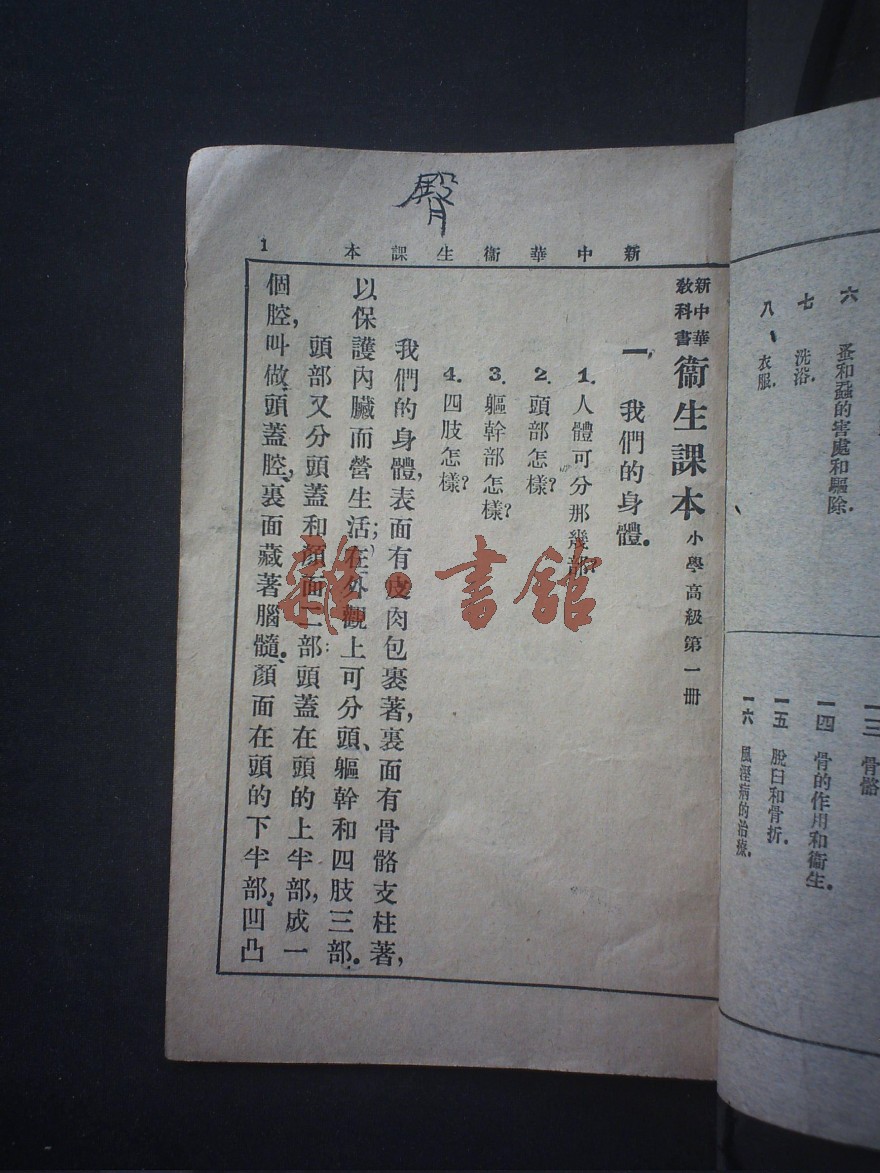 臀
新中華衞生課本 1
新中華
教科書
衞生課本 小學高級第一册
一, 我們的身體.
1. 人體可分那幾部?
2. 頭部怎樣?
3. 軀幹部怎樣?
4. 四肢怎樣?
我們的身體,表面有皮肉包裹著,裏面有骨骼支柱著,
以保護內臟而營生活;在外觀上可分頭、軀幹和四肢三部.
頭部又分頭蓋和顏面二部:頭蓋在頭的上半部,成一
個腔,叫做頭蓋腔,裏面藏著腦髓.顏面在頭的下半部,凹凸
雜·書館
六 蚤和蝨的害處和驅除.
七 洗浴.
八 衣服.
一三 骨骼
一四 骨的作用和衞生.
一五 脫臼和骨折.
一六 風溼病的治療.